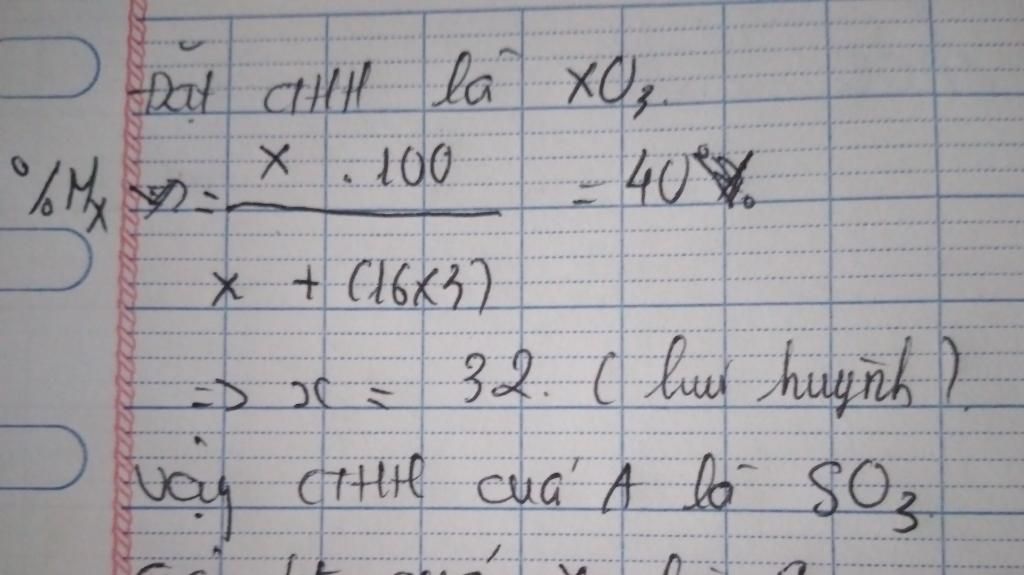 Đặt CTHH là XO3.
%Mx = x . 100 / x + (16x3) = 40%
=> x = 32. (lưu huỳnh)
Vậy CTHH của A là SO3